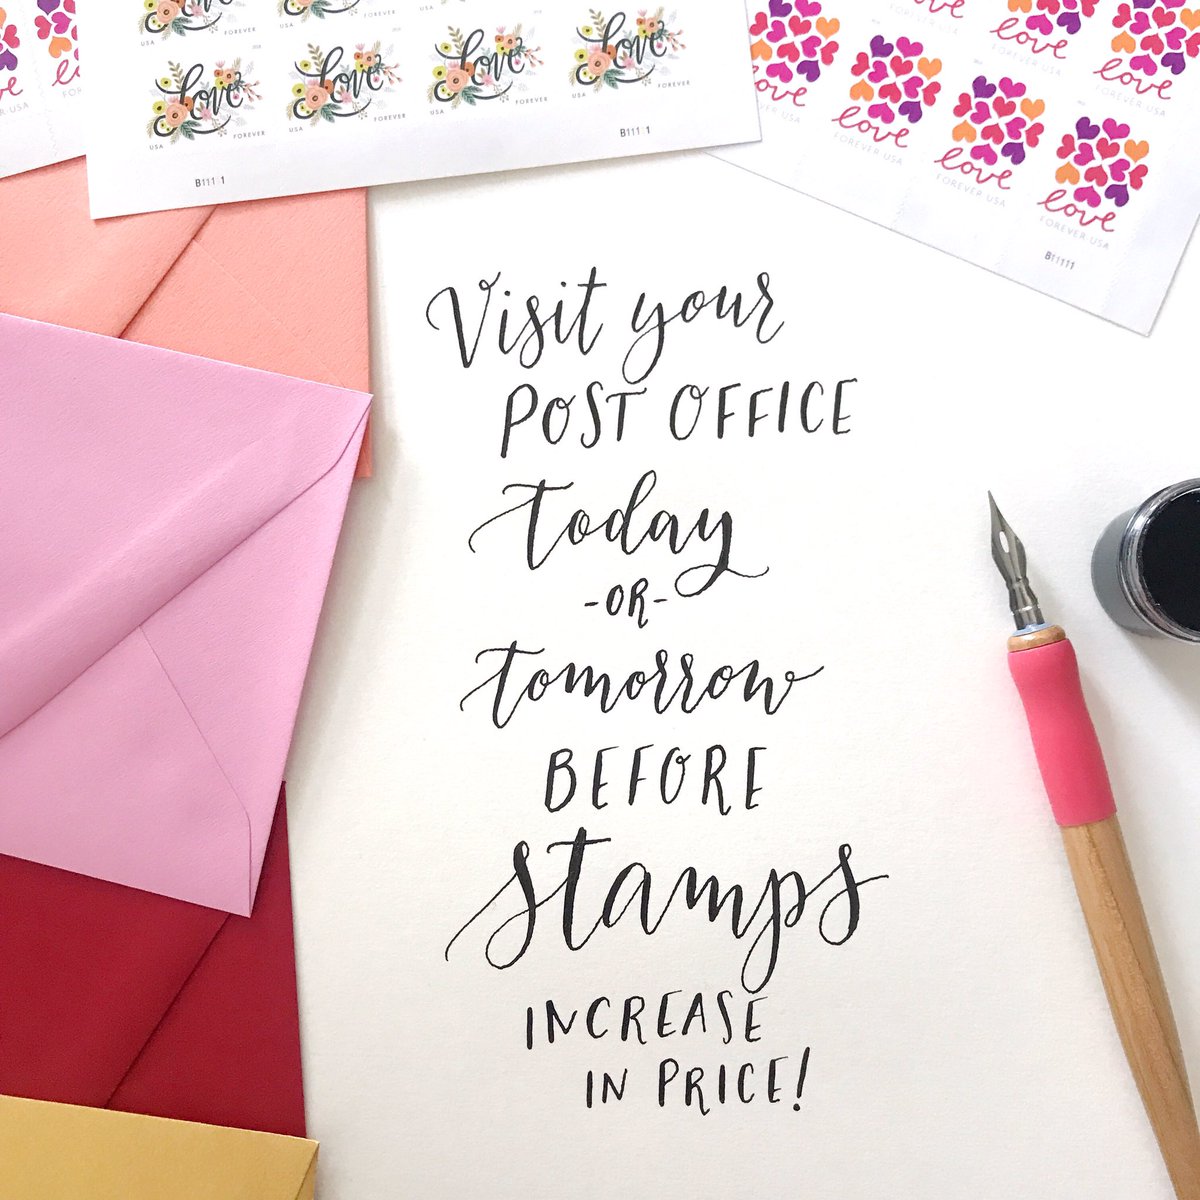 USA FOREVER
Love Love Love Love
USA FOREVER USA FOREVER USA FOREVER USA FOREVER
B111 1
B111 1
FOREVER USA
love
FOREVER USA
love love love love
FOREVER USA FOREVER USA FOREVER USA
B11111
Visit your
POST OFFICE
today
-OR-
tomorrow
BEFORE
stamps
INCREASE
IN PRICE!